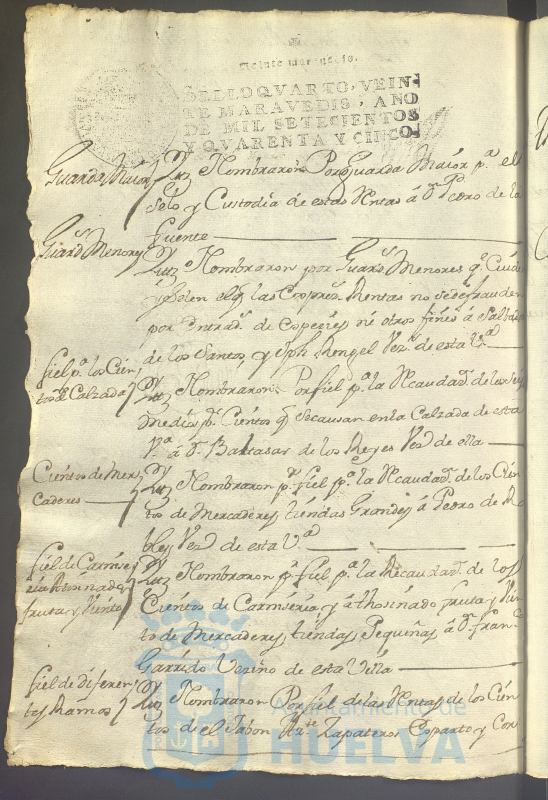 Veinte maravedis.
SELLO QVARTO, VEIN-
TE MARAVEDIS, AÑO
DE MIL SETECIENTOS
Y QVARENTA Y CINCO.
Guarda Maior
Nombraron Por Guarda Maior pa. el
selo y Custodia de estas Rentas á Dn. Pedro de la
fuente
Guards. Menores
Nombraron por Guards. Menores qe. Cuiden
las Rentas no se defrauden
por de especies ni otros fines á
de los Santos, y Jph. Rangel Vezs. de esta Va.
fiel pa. los Cien-
tos de Calzada
Nombraron Por fiel pa. la Recaudn. de los
medios pr. Cientos q se causan en la Calzada de esta
Va. á Dn. Baltasar de los Reyes Vezo. de ella
Cientos de Mer-
caderes
Nombraron pr. fiel pa. la Recaudn. de los Cien-
tos de Mercaderes tiendas Grandes á Pedro de Ro
bles Vezo. de esta Va.
fiel de Carnise-
ria
fruta y Viento
Nombraron pr. fiel pa. la Recaudn. de los
Cientos de Carniseria, y fruta y Vien-
to de Mercaderes tiendas Pequeñas á Dn. Franco.
Garrido Vezino de esta Villa
fiel de diferen-
tes Ramos
Nombraron Por fiel de las Rentas de los Cien-
tos de el Jabon Zapateros Esparto y Cor
Ayuntamiento de
HUELVA